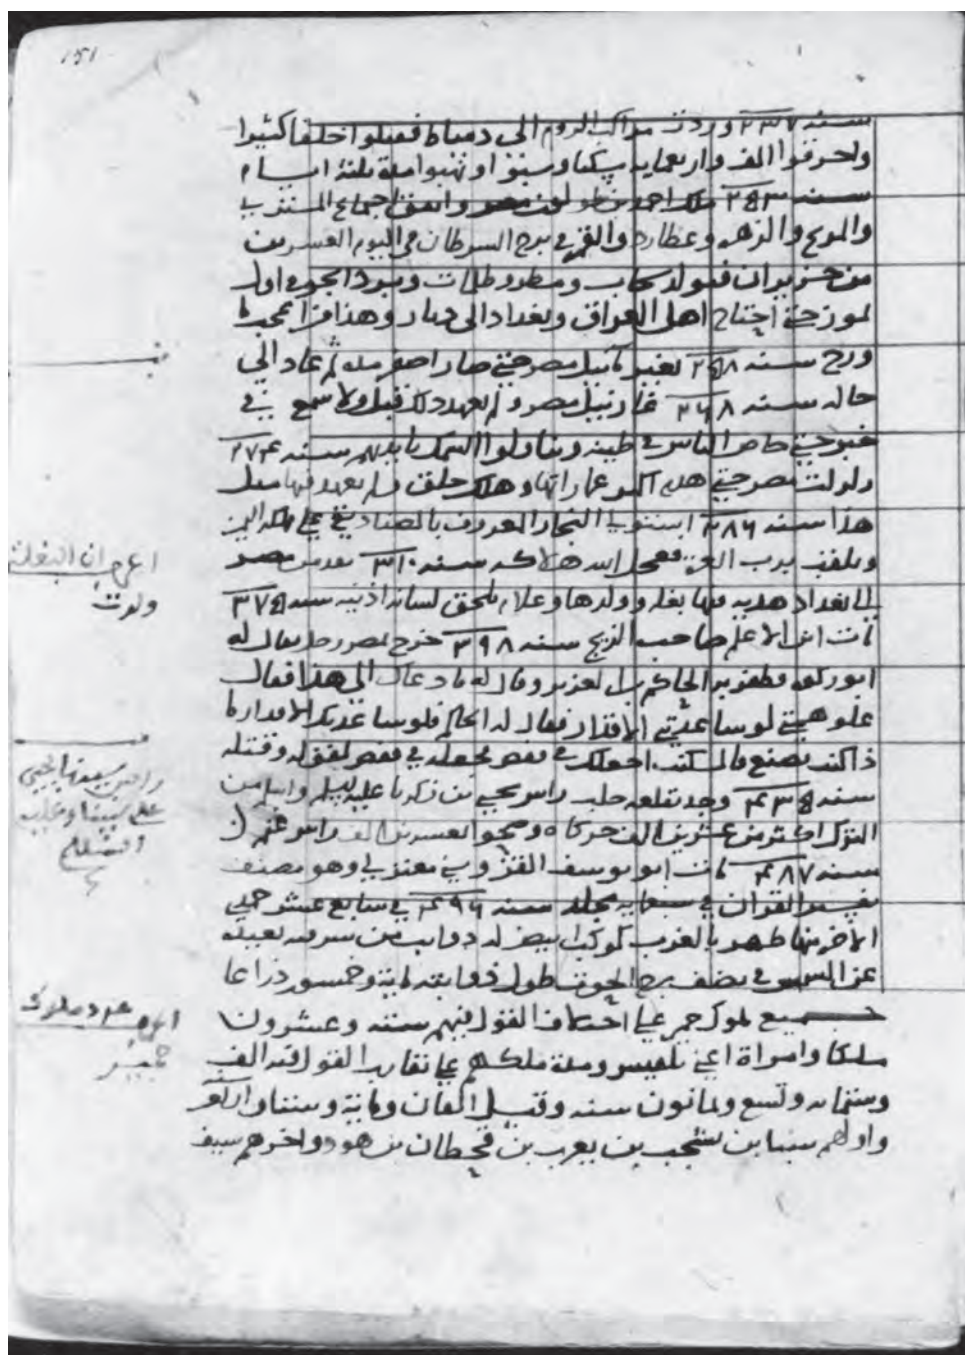 ١٥١
سنه ٢٣٧ وردت مراكب الروم الى دمياط فقتلوا خلقا كثيرا
واحرقوا الف واربعمايه وسبوا ونهبوا مدة ثلثة ايام
سنه ملك احمد بن طولون مصر واتفق اجماع المشتري
والمريخ والزهره وعطارد والقمر في برج السرطان في اليوم العشرين
من حزيران فتولد سحاب ومطر وظلمات وبرد الجو في اول
تموز حتى احتاج اهل العراق وبغداد الى دثار وهذا من اعجب ما
ورخ سنه تغير ماء نيل مصر حتى صار اصفر مده ثم عاد الى
حاله سنه ٢٦٨ غار نيل مصر ولم يعهد ذلك قبل ولا سمع في
خبر حتى خاض الناس في طينه وتناولوا السمك بايديهم سنه
زلزلت مصر حتى هدم اكثر عماراتها وهلك خلق ولم يعهد فيها مثل
هذا سنه ٢٨٦ استولى النجار المعروف بالصناديقي على مملكه اليمن
وتلقب برب العزه فعجل الله هلاكه سنه ٣١٠ من مصر
الى بغداد هديه فيها بغله وولدها وغلام يلحق لسانه اذنيه سنه
مات ابن الاعلم صاحب الزيج سنه ٣٩٨ خرج بمصر رجل يقال له
ابو ركوه فظفر به الحاكم بن العزيز وقال له ما دعاك الى هذا فقال
علو همتي لو ساعدتني الاقدار فقال له الحاكم فلو ساعدتك الاقدار ما
ذا كنت تصنع قال كنت اجعلك في قفص فجعله في قفص لقوله وقتله
سنه وجد بقلعه حلب راس يحيى بن زكريا عليه السلم واسلم من
الترك اكثر من عشرين الف خركاه وضحوا بعشرين الف راس غنم
سنه مات ابو يوسف القزويني معتزلي وهو مصنف
تفسير القران في سبعمايه مجلد سنه في سابع عشر جمادى
الاخر منها ظهر بالغرب كوكب ابيض له ذوابه من شرقه بعيده
عن الشمس في نصف برج الحوت طول ذوابته مايه وخمسون ذراعا
جميع ملوك حمير على اختلاف القول فيهم ستة وعشرون
ملكا وامراة اعني بلقيس ومدة ملكهم على تقارب القول فيه الف
وستمايه وتسع وثمانون سنه وقيل الفان ومايه وستة
واولهم سبا بن يشجب بن يعرب بن قحطان بن هود واخرهم سيف
ان البغلة
ولدت
راس سيدنا يحيى
على نبينا وعليه
السلام
عدد ملوك
حمير